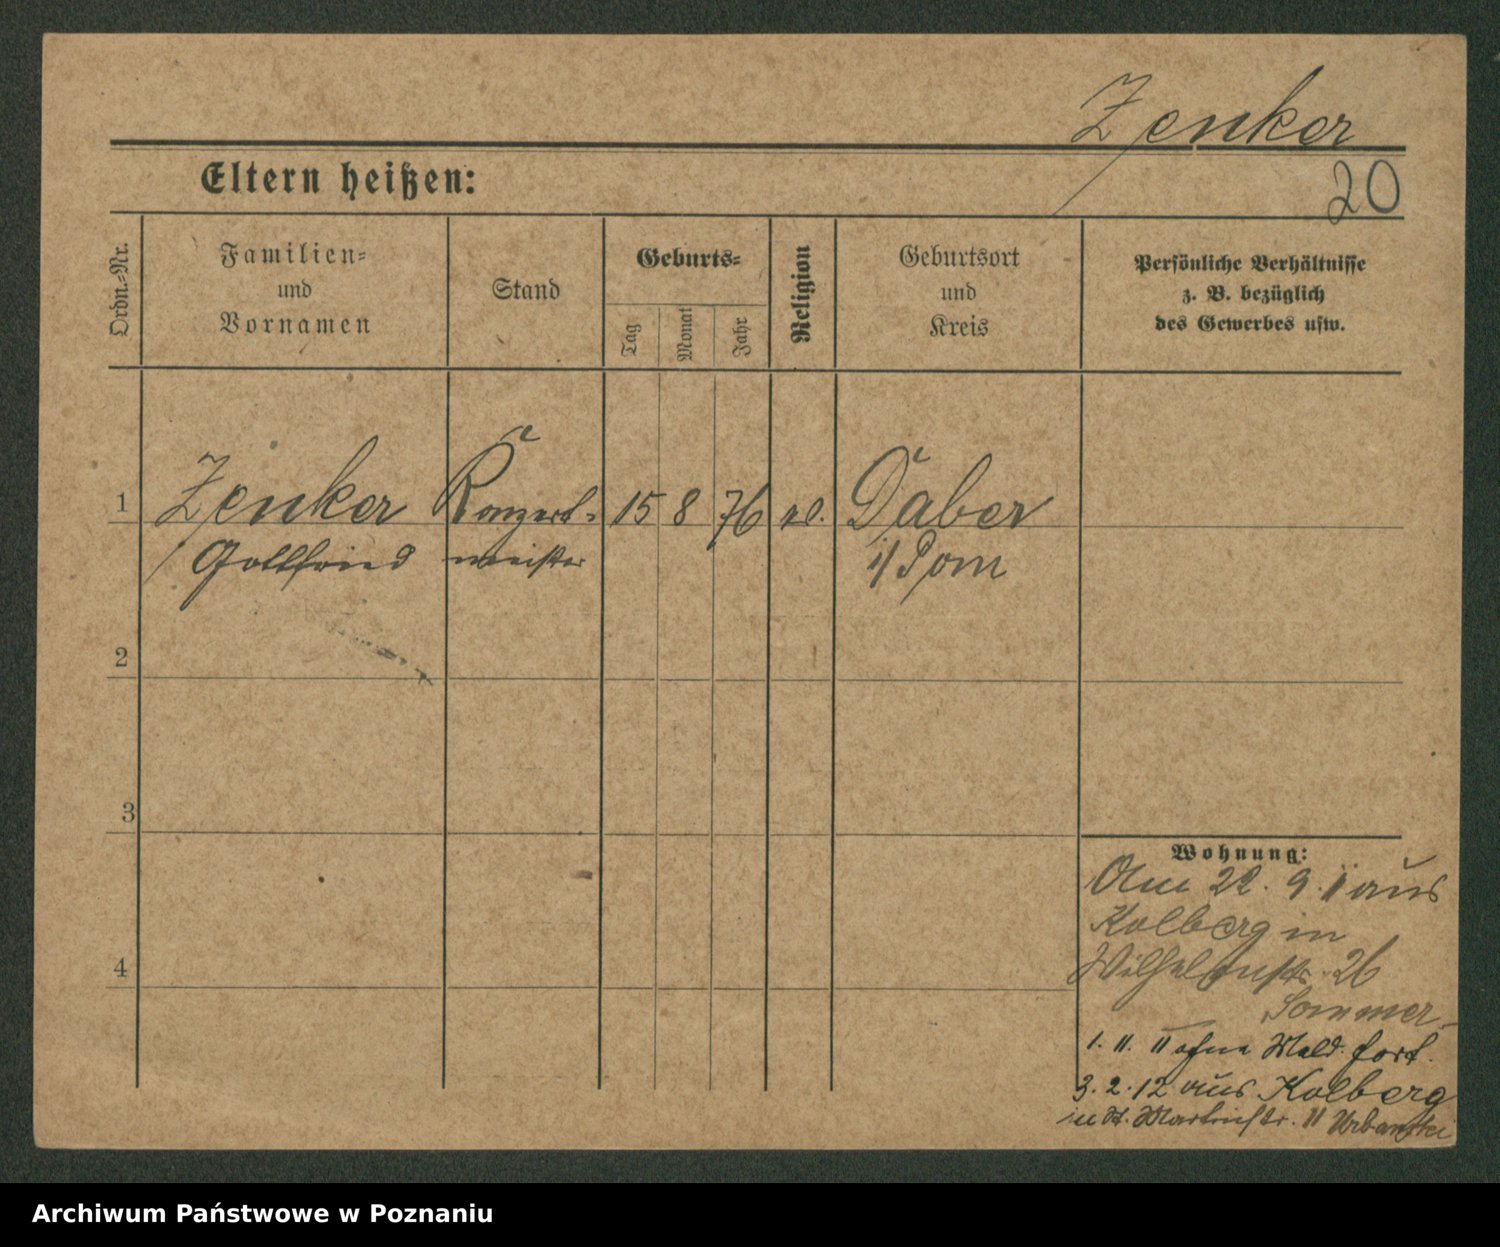 Zenker
Eltern heißen:
20
Ordn.-Nr.
Familien-
und
Vornamen
Stand
Geburts-
Tag
Monat
Jahr
Religion
Geburtsort
und
Kreis
Persönliche Verhältnisse
z. B. bezüglich
des Gewerbes usw.
1
Zenker Konzert- 15 8 76 Daber
Gottfried meister i/Pom
2
3
4
Wohnung:
Am 22. 9. 11 aus
Kolberg in
Wilhelmstr. 26
Sommer
1. 11. 11 ohne Meld. fort.
3. 2. 12 aus Kolberg
in St. Martinstr. 11
Archiwum Państwowe w Poznaniu